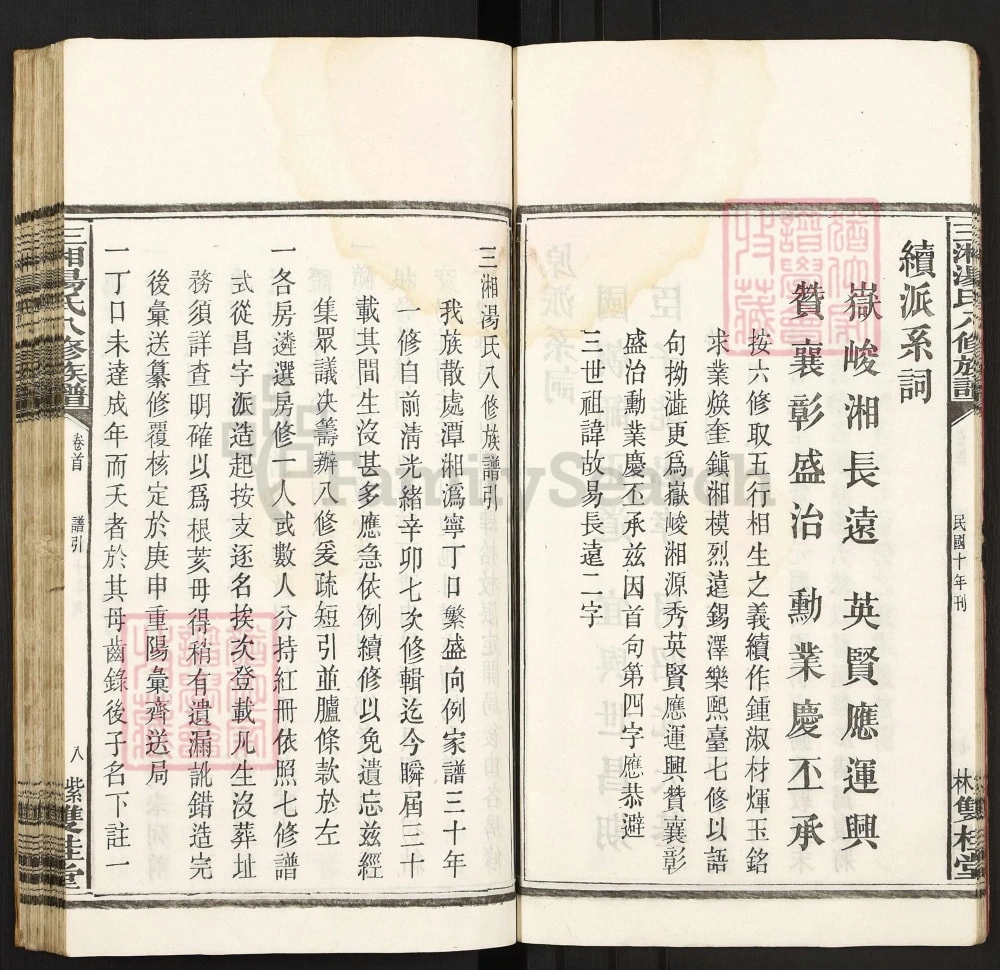 三湘湯氏八修族譜
民國十年刊
林雙桂堂
續派系詞
嶽峻湘長遠 英賢應運興
贊襄彰盛治 勳業慶丕承
按六修取五行相生之義續作鍾淑材煇玉銘
求業煥奎鎮湘模烈遠錫澤樂熙臺七修以語
句拗澁更為嶽峻湘源秀英賢應運興贊襄彰
盛治勳業慶丕承茲因首句第四字應恭避
三世祖諱故易長遠二字
三湘湯氏八修族譜引
我族散處潭湘溈寧丁口繁盛向例家譜三十年
一修自前清光緒辛卯七次修輯迄今瞬屆三十
載其間生沒甚多應急依例續修以免遺忘茲經
集眾議決籌辦八修爰疏短引並臚條款於左
一各房遴選房修一人或數人分持紅冊依照七修譜
式從昌字派造起按支逐名挨次登載凡生沒葬址
務須詳查明確以爲根荄毋得稍有遺漏訛錯造完
後彙送纂修覆核定於庚申重陽彙齊送局
一丁口未達成年而夭者於其母齒錄後子名下註一
三湘湯氏八修族譜
卷首
譜引
八
紫雙桂堂
FamilySearch